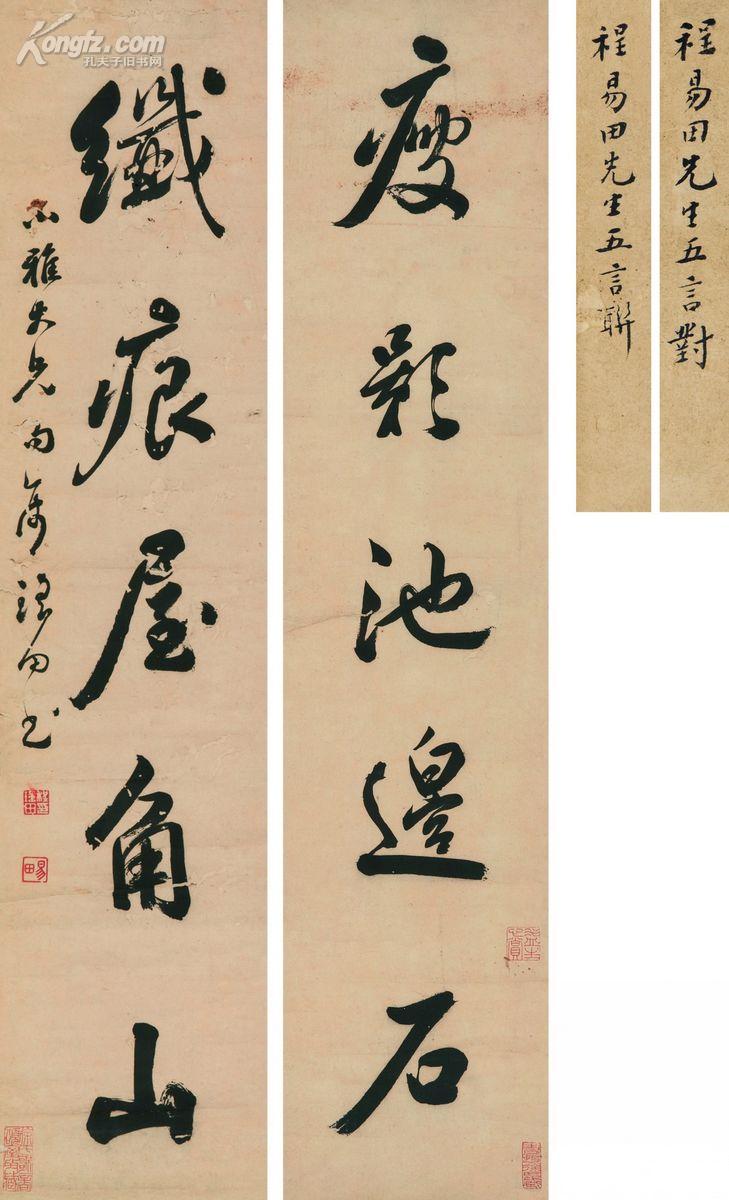 程易田先生五言對
程易田先生五言聯
瘦影池邊石
纖痕屋角山
小雅大兄句屬瑤田書
易田
Kongfz.com
孔夫子旧书网